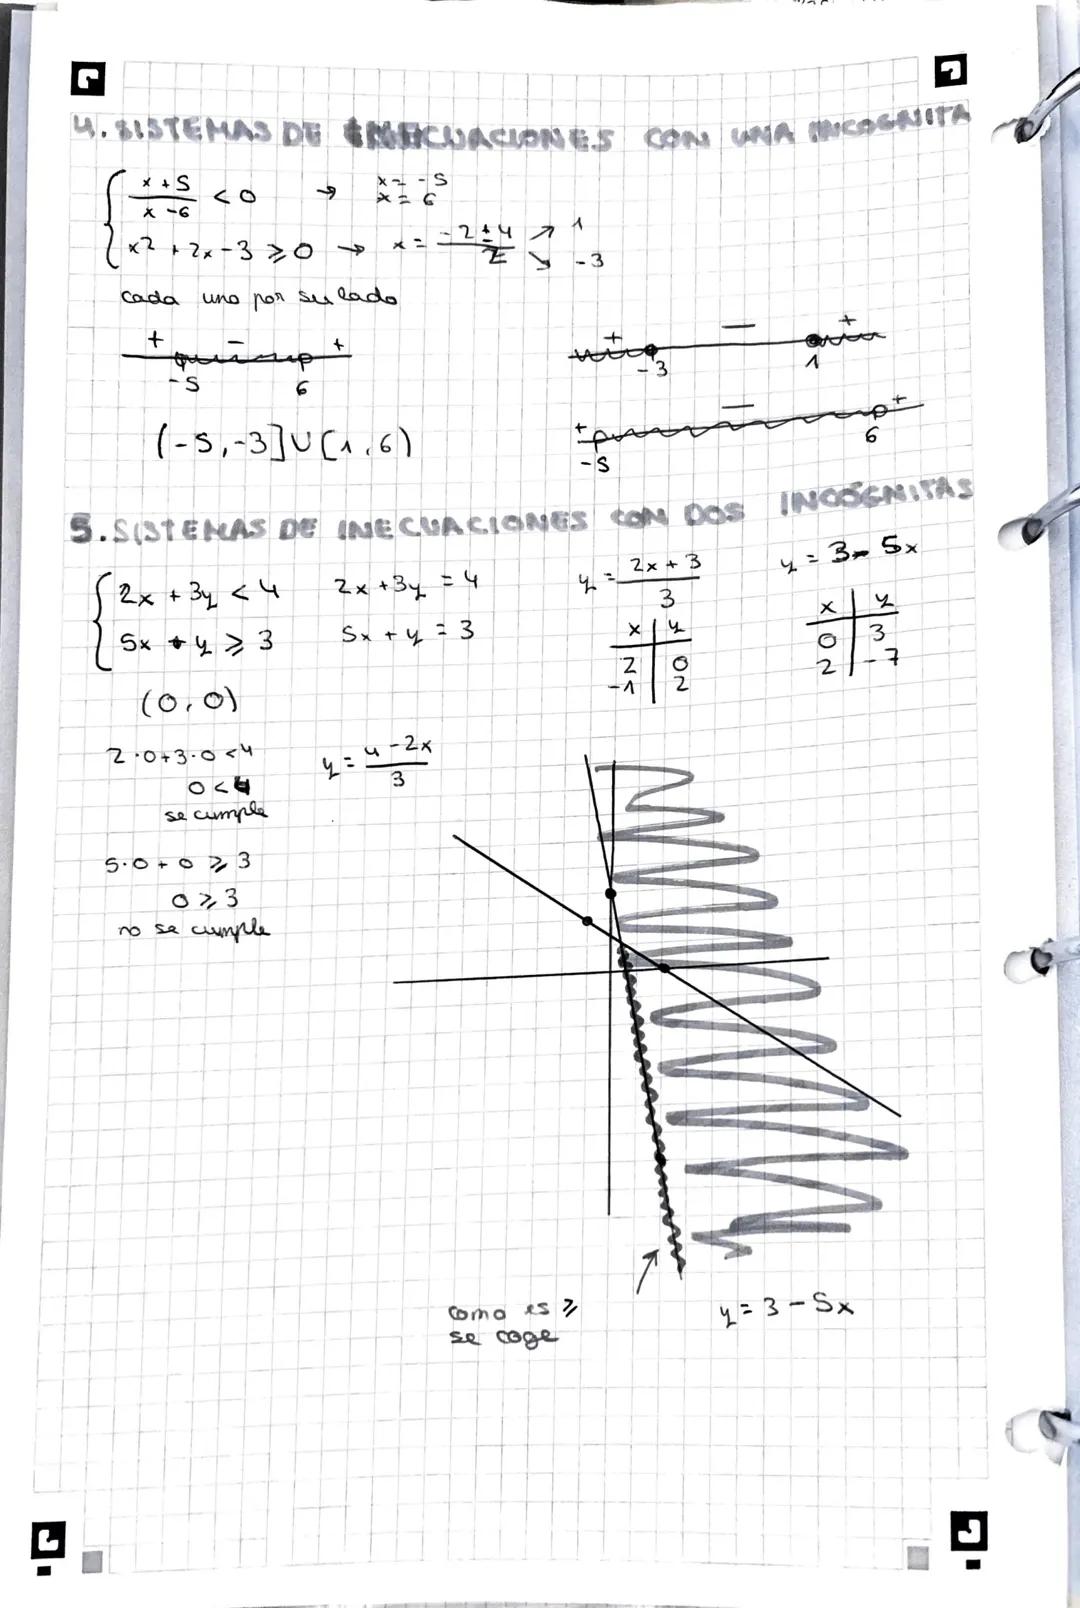 4. SISTEMAS DE INECUACIONES CON UNA INCOGNITA
x + 5 / x - 6 < 0 → x = -5
x = 6
x2 + 2x - 3 ≥ 0 → x = -2 ± 4 / 2 ↗ 1
↘ -3
cada uno por su lado
+ - +
-5 6
+ - +
-3 1
(-5, -3] U [1, 6)
+ - +
-5 6
5. SISTEMAS DE INECUACIONES CON DOS INCÓGNITAS
2x + 3y < 4 2x + 3y = 4 y = 2x + 3 / 3 y = 3 - 5x
5x + y ≥ 3 5x + y = 3
x | y
2 | 0
-1 | 2
x | y
0 | 3
2 | -7
(0,0)
2·0+3·0<4
0<4
se cumple
y = 4 - 2x / 3
5·0 + 0 ≥ 3
0 ≥ 3
no se cumple
como es ≥
se coge
y = 3 - 5x